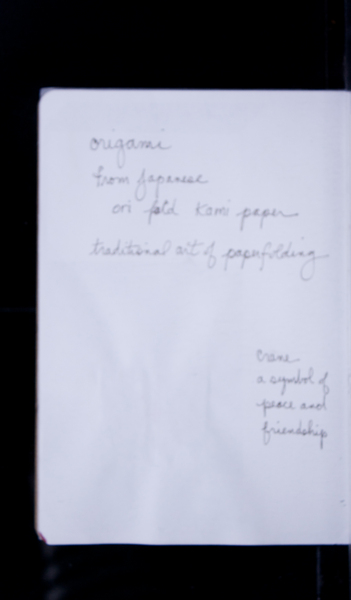 origami
from Japanese
ori fold Kami paper
traditional art of paperfolding
crane
a symbol of
peace and
friendship